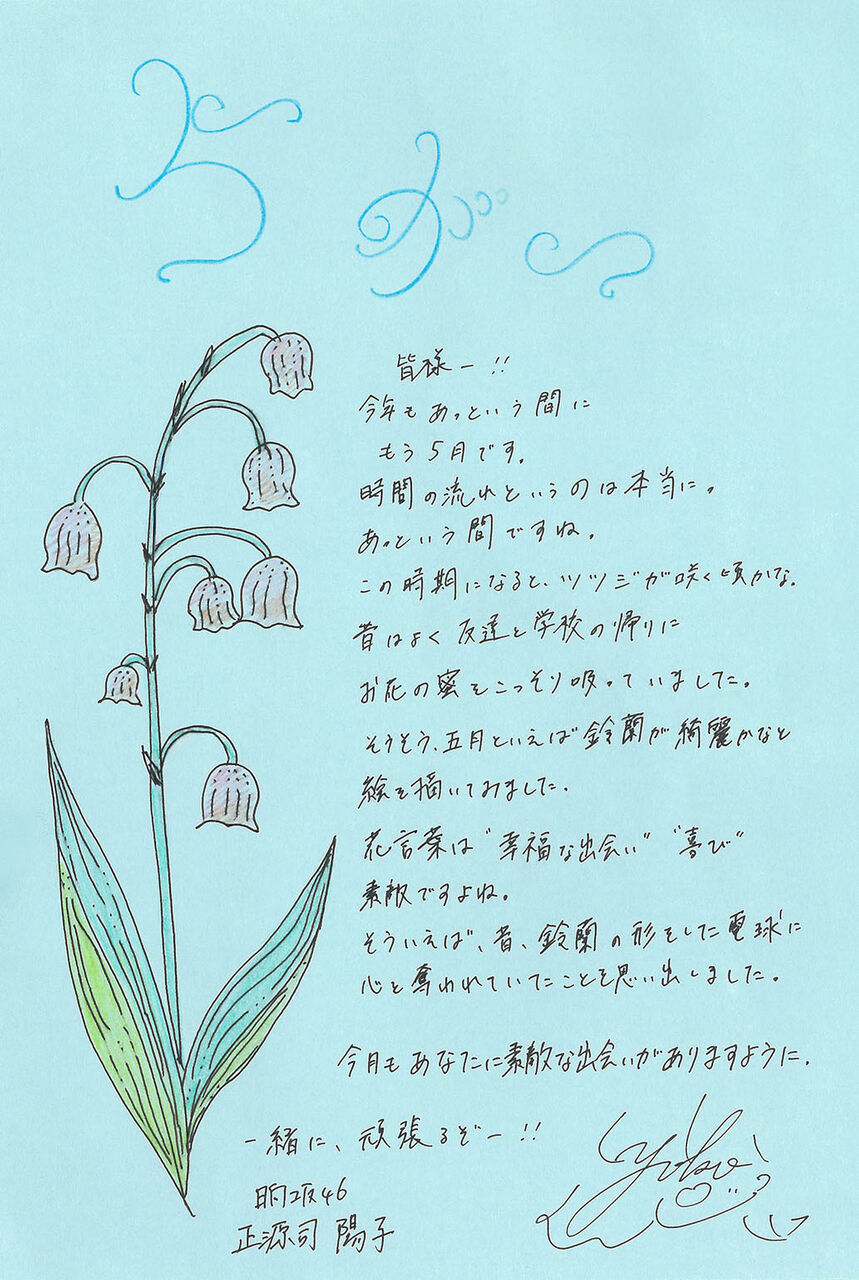 皆様ー!!
今年もあっという間に
もう5月です。
時間の流れというのは本当に。
あっという間ですね。
この時期になると、ツツジが咲く頃かな。
昔はよく友達と学校の帰りに
お花の蜜をこっそり吸っていました。
そうそう、五月といえば鈴蘭が綺麗かなと
絵を描いてみました。
花言葉は"幸福な出会い" "喜び"
素敵ですよね。
そういえば、昔、鈴蘭の形をした電球に
心を奪われていたことを思い出しました。
今月もあなたに素敵な出会いがありますように。
一緒に、頑張るぞー!!
日向坂46
正源司 陽子
yoko